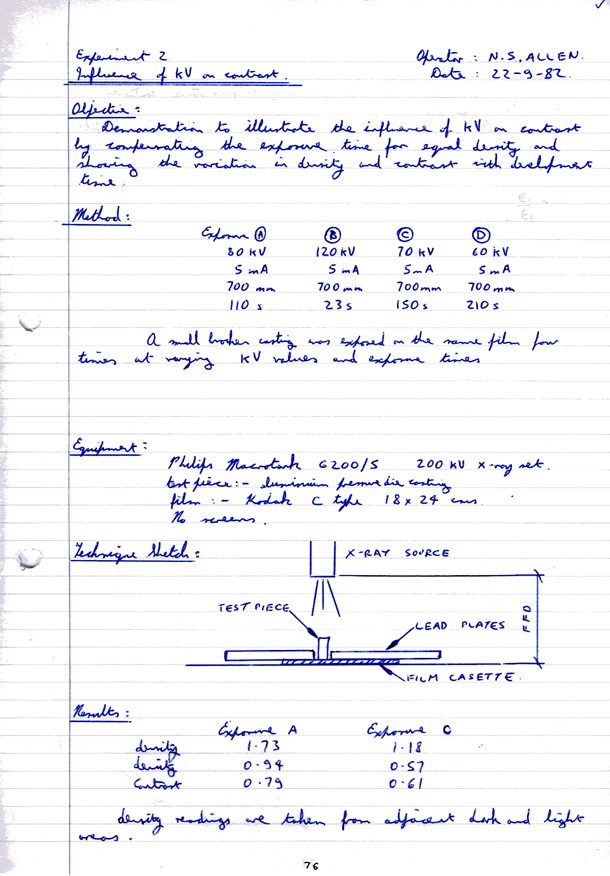 Experiment 2
Operator : N.S. ALLEN.
Influence of kV on contrast.
Date : 22-9-82.
Objective :
Demonstration to illustrate the influence of kV on contrast
by compensating the exposure time for equal density and
showing the variation in density and contrast with development
time.
E₁
E₂
Method :
Exposure (A) (B) (C) (D)
80 kV 120 kV 70 kV 60 kV
5 mA 5 mA 5 mA 5 mA
700 mm 700 mm 700 mm 700 mm
110 s 23 s 150 s 210 s
A small broken casting was exposed on the same film four
times at varying kV values and exposure times
Equipment :
Philips Macrotank G200/S 200 kV x-ray set.
test piece :- luminium pressure die casting
film :- Kodak C type 18 x 24 cms.
No screens.
Technique Sketch :
X-RAY SOURCE
TEST PIECE
FFD
LEAD PLATES
FILM CASETTE.
Results :
Exposure A Exposure C
density 1.73 1.18
density 0.94 0.57
Contrast 0.79 0.61
density readings are taken from adjacent dark and light
areas.
76